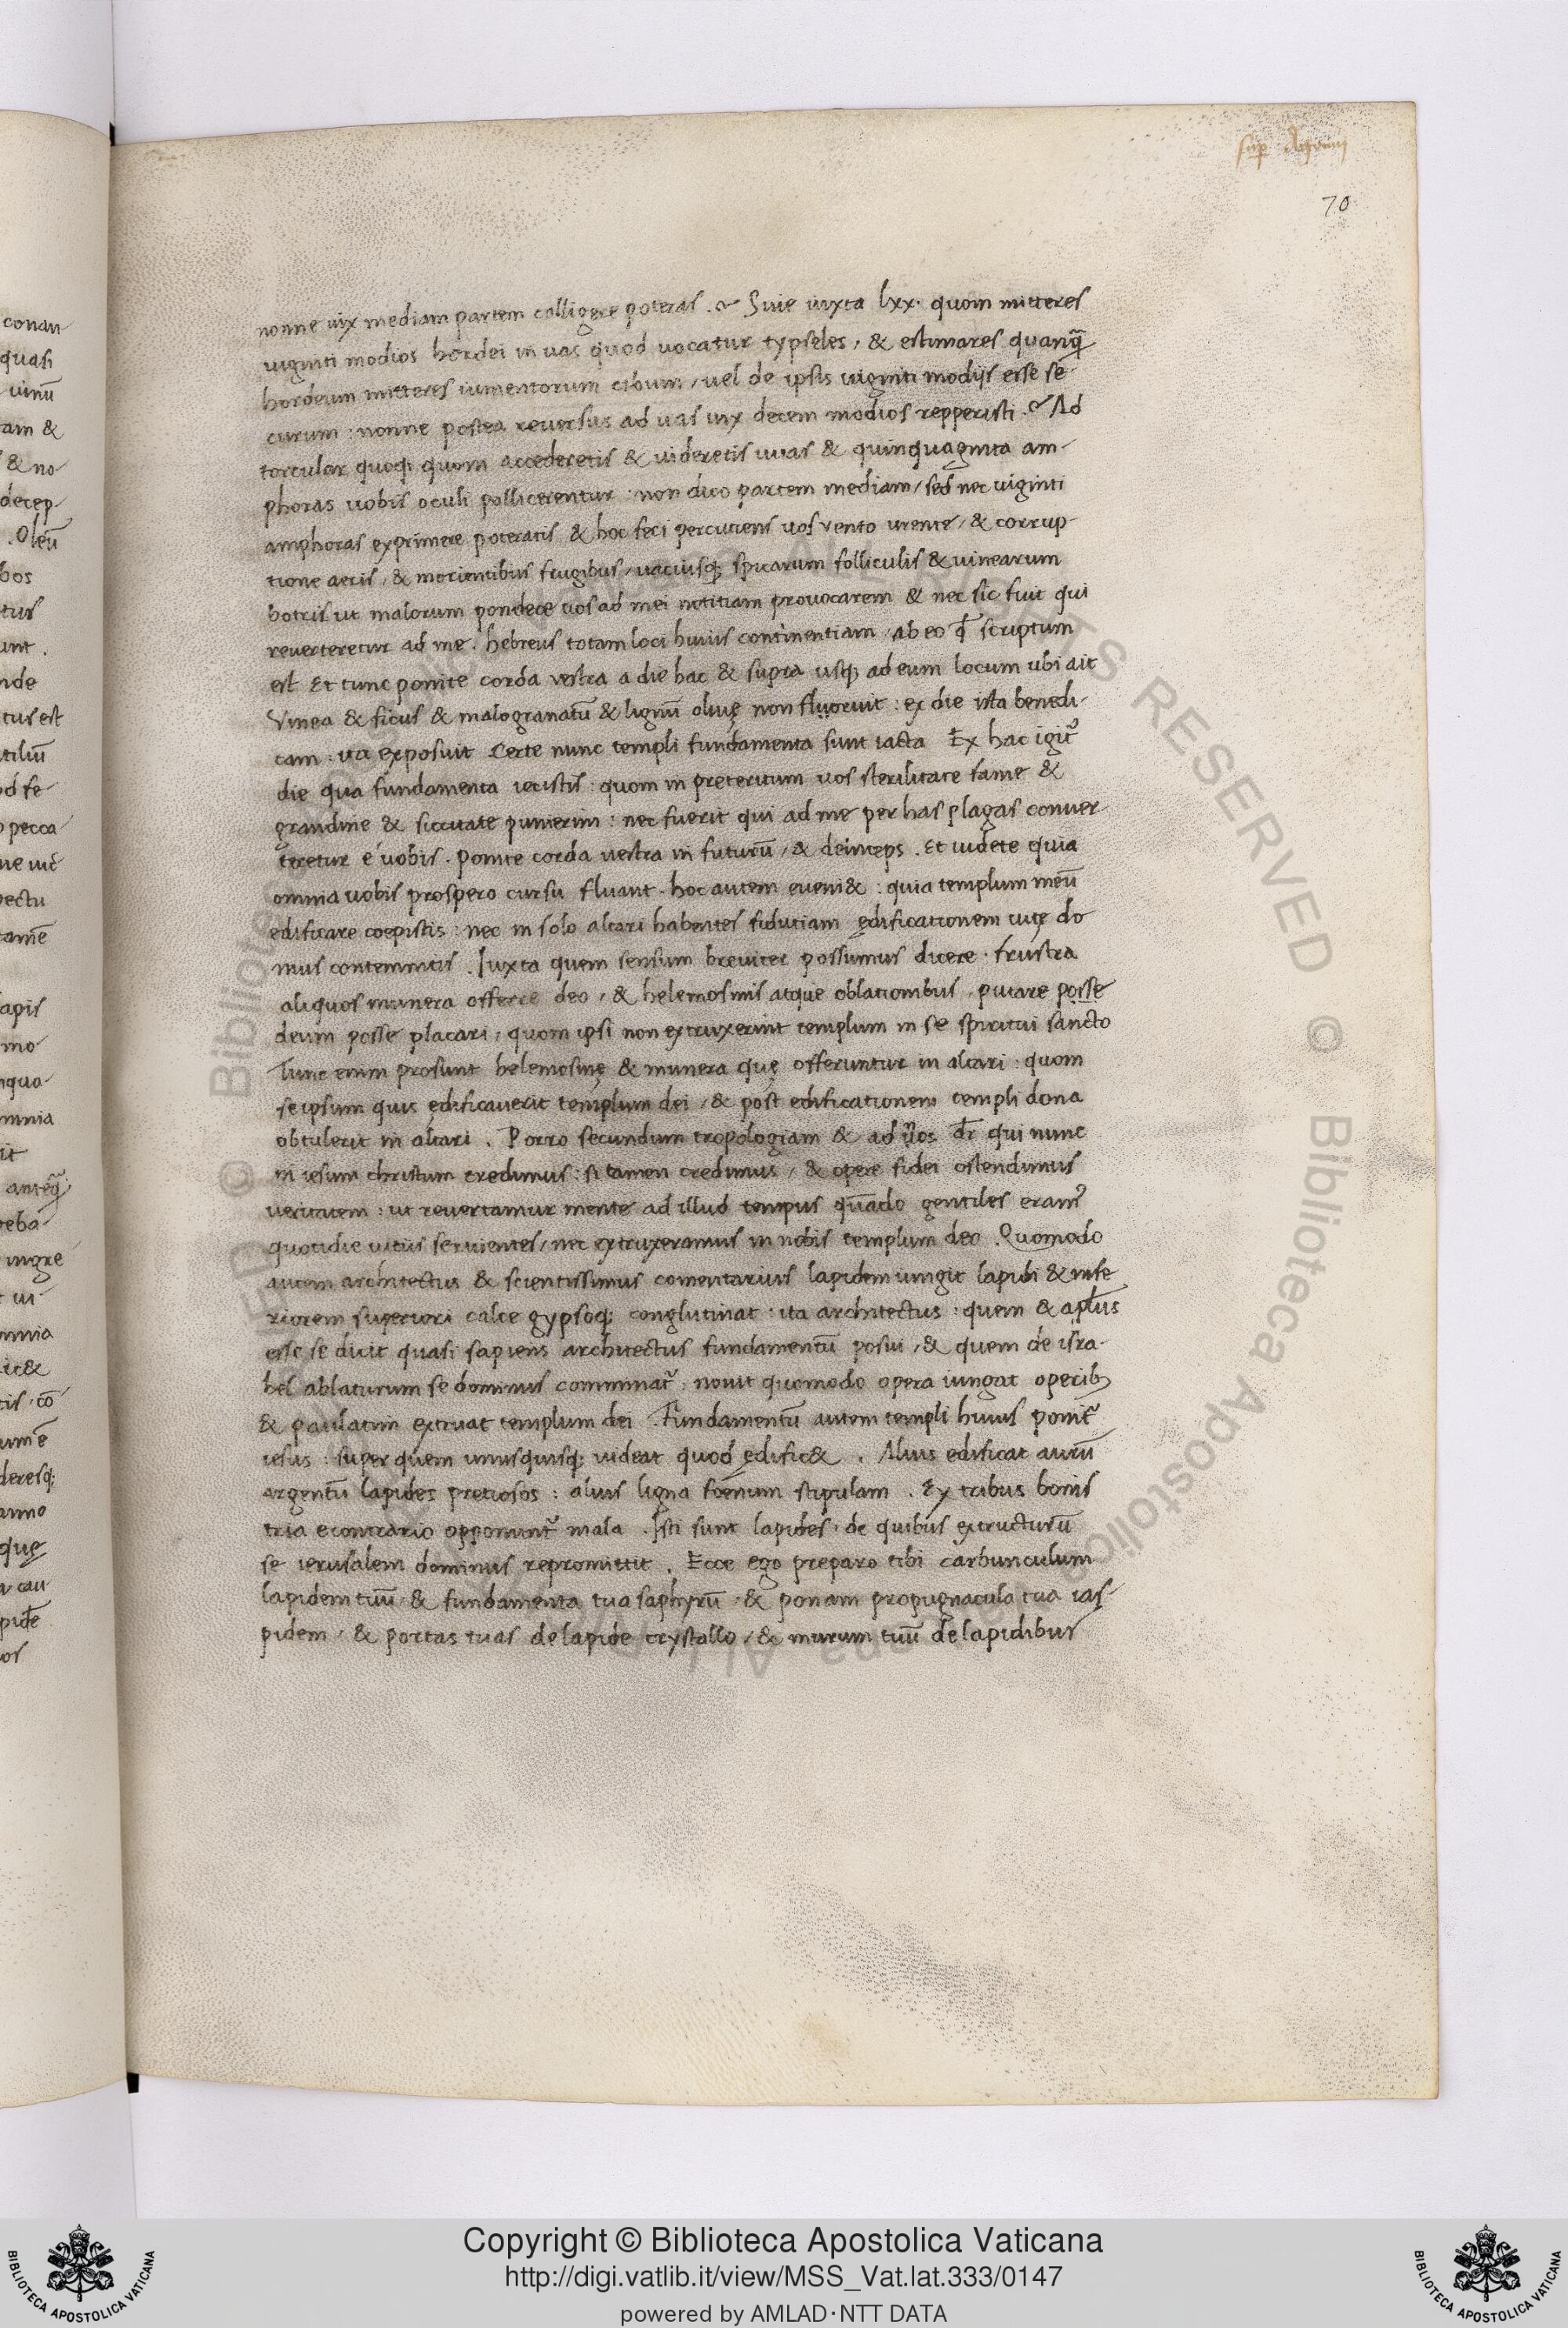 sup Aggeum
70
nonne uix mediam partem colligere poteras. Siue iuxta lxx. quom mitteres
uiginti modios hordei in uas quod uocatur typseles, & estimares quanq̃
hordeum mitteres iumentorum cibum, uel de ipsis uiginti modijs esse se-
curum: nonne postea reuersus ad uas uix decem modios repperisti. Ad
torcular quoq; quom accederetis & uideretis uuas & quinquaginta am-
phoras uobis oculi pollicerentur: non dico partem mediam, sed nec uiginti
amphoras exprimere poteratis & hoc feci percutiens uos vento urente, & corrup-
tione aeris, & morientibus frugibus, uacuisq; spicarum folliculis & uinearum
botris ut malorum pondere uos ad mei notitiam prouocarem & nec sic fuit qui
reuerteretur ad me. hebreus totam loci huius continentiam, ab eo qđ scriptum
est Et tunc ponite corda vestra a die hac & supra usq; ad eum locum ubi ait
Vinea & ficus & malogranatũ & lignũ oliuę non fluoruit: ex die ista benedi-
cam: ita exposuit Certe nunc templi fundamenta sunt iacta Ex hac igit᷒
die qua fundamenta iecistis: quom in preteritum uos sterilitate fame &
grandine & siccitate punierim: nec fuerit qui ad me per has plagas conuer-
teretur é uobis. ponite corda vestra in futurũ, & deinceps. Et uidete quia
omnia uobis prospero cursu fluant. hoc autem eueni&: quia templum meũ
edificare coepistis: nec in solo altari habentes fiduciam ędificationem cutę do
mus contemnitis. Iuxta quem sensum breuiter possumus dicere. frustra
aliquos munera offerre deo, & helemosinis atque oblationibus, putare posse
deum posse placari, quom ipsi non extruxerint templum in se spiritui sancto
Tunc enim prosunt helemosinę & munera quę offeruntur in altari: quom
se ipsum quis ędificauerit templum dei, & post edificationem templi dona
obtulerit in altari. Porro secundum tropologiam & ad nos dr̃ qui nunc
in iesum christum credimus: si tamen credimus, & opere fidei ostendimus
ueritatem: ut reuertamur mente ad illud tempus quãdo gentiles eram᷒
quotidie uitiis seruientes, nec extruxeramus in nobis templum deo. Quomodo
autem architectus & scientissimus cementarius lapidem iungit lapidi & infe
riorem superiori calce gypsoq; conglutinat: ita architectus: quem & apłus
esse se dicit quasi sapiens architectus fundamentũ posui, & quem de isra-
hel ablaturum se dominus comminat᷒: nouit quomodo opera iungat operib;
& paulatim extruat templum dei. Fundamentũ autem templi huius ponit᷒
iesus: super quem unusquisq; uideat quod ędific&. Alius edificat aurũ
argentũ lapides pretiosos: alius ligna foenum stipulam. Ex tribus bonis
tria econtrario opponunt᷒ mala. Isti sunt lapides, de quibus extructurũ
se ierusalem dominus repromittit. Ecce ego preparo tibi carbunculum
lapidem tuũ, & fundamenta tua saphyrũ, & ponam propugnacula tua ias-
pidem, & portas tuas de lapide crystallo, & murum tuũ de lapidibus
conan-
quasi
uinũ
am &
& no-
decep-
. Oleũ
bos
tus
unt.
nde
tus est
tiliũ
pecca-
pectu
tamẽ
apis
mo-
nqua-
omnia
it
anteq̃
reba-
ingre
ui-
omnia
tis, cõ
umẽ
deresq;
anno
quę
cau-
pidẽ
os
Copyright © Biblioteca Apostolica Vaticana
http://digi.vatlib.it/view/MSS_Vat.lat.333/0147
powered by AMLAD·NTT DATA
BIBLIOTECA APOSTOLICA VATICANA
BIBLIOTECA APOSTOLICA VATICANA